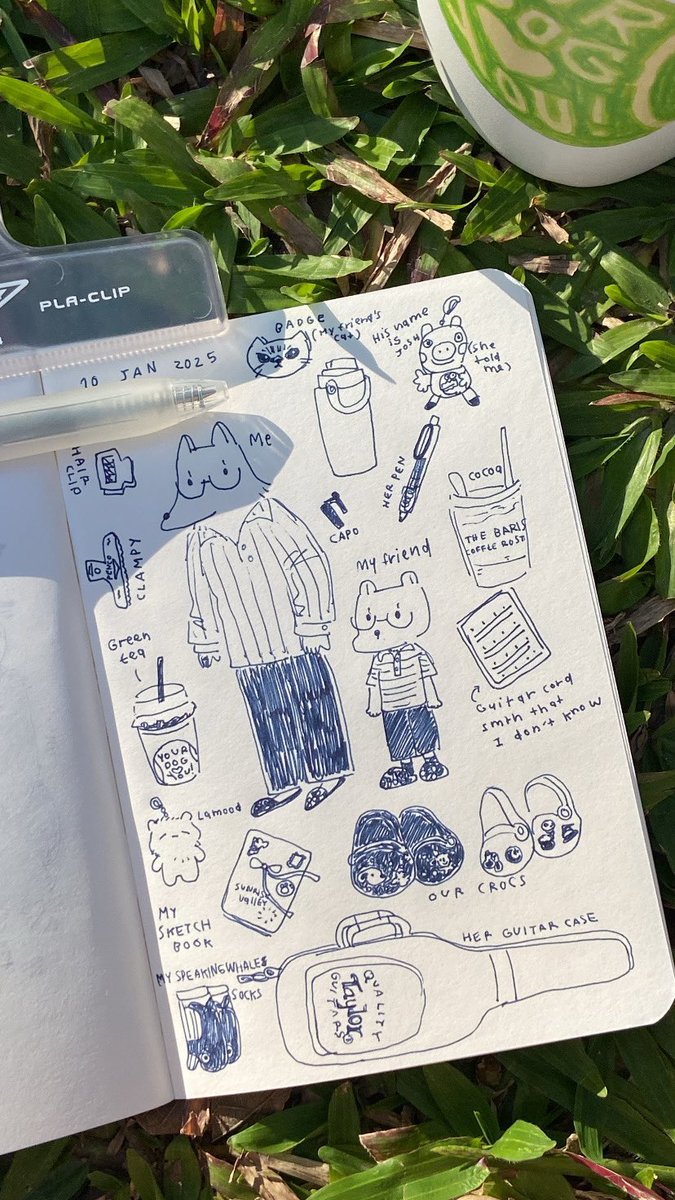 PLA-CLIP
10 JAN 2025
BADGE
(My friend's
cat)
His name
is
JOSH
(She
told
me)
HAIR
CLIP
Me
HER PEN
COCOA
THE BARIS
COFFLE ROST
CAPO
PENCO
CLAMPY
My friend
Green
tea
YOUR
DOG
YOU!
Guitar cord
smth that
I don't know
Lamood
SUNRISE
VALLEY
OUR CROCS
MY
SKETCH
BOOK
HER GUITAR CASE
MY SPEAKING WHALES
SOCKS
QUALITY
Taylor
GUITARS